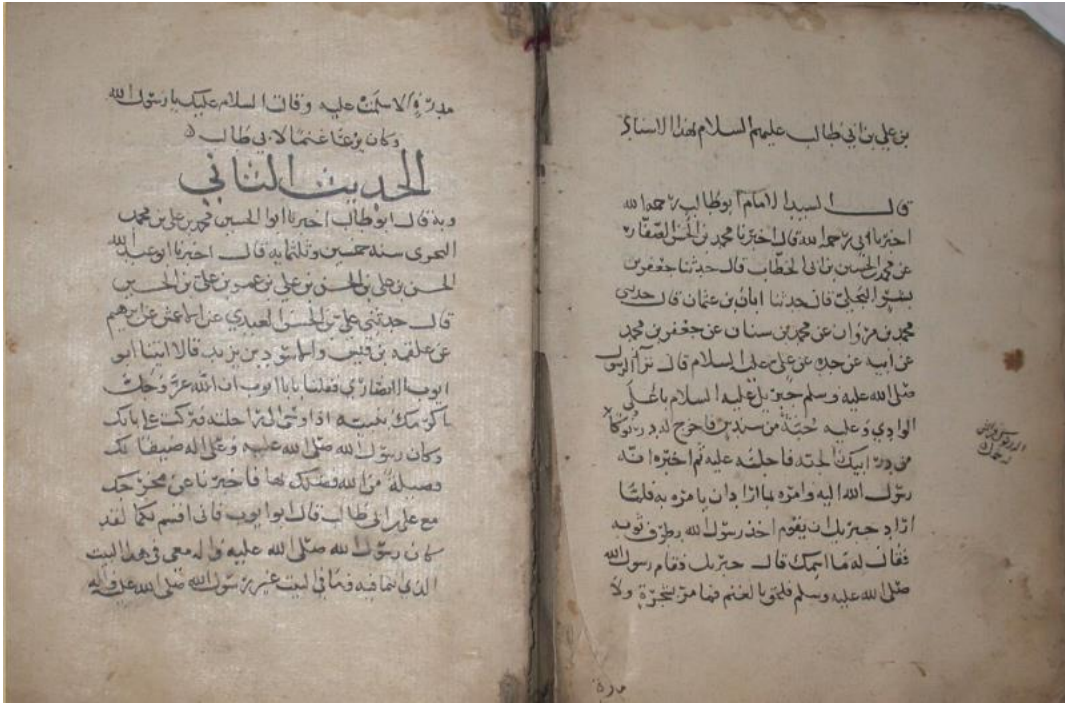 بن علي بن ابي طالب عليهم السلام بهذا الاسناد
قال السيد الامام ابو طالب رحمه الله
اخبرنا ابي رحمه الله قال اخبرنا محمد بن الحسن الصفار
عن محمد بن الحسين بن ابي الخطاب قال حدثنا جعفر بن
بشير البجلي قال حدثنا ابان بن عثمان قال حدثني
محمد بن مروان عن محمد بن سنان عن جعفر بن محمد
عن ابيه عن جده عن علي عليه السلام قال نزل
صلى الله عليه وسلم جبريل عليه السلام باعلى
الوادي وعليه جبة من سندس فاخرج له درنوكا
من درانيك الجنة فاجلسه عليه ثم اخبره انه
رسول الله اليه وامره بما اراد ان يامره به فلما
اراد جبريل ان يقوم اخذ رسول الله بطرف ثوبه
فقال له ما اسمك قال جبريل فقام رسول الله
صلى الله عليه وسلم فلحق بالغنم فما مر بشجرة ولا
مدرة
الدرنوك
مدرة الا سلمت عليه وقالت السلام عليك يا رسول الله
وكان يرعا غنما لابي طالب
الحديث الثاني
وبه قال ابو طالب اخبرنا ابو الحسين محمد بن علي بن محمد
البحري سنة خمسين وثلثمايه قال اخبرنا ابو عبد الله
الحسن بن علي بن الحسن بن علي بن عمر بن علي بن الحسين
قال حدثني علي بن الحسن العبدي عن الاعمش عن ابرهيم
عن علقمه بن قيس والاسود بن يزيد قالا اتينا ابو
ايوب الانصاري فقلنا يابا ايوب ان الله عز وجل
اكرمك بنبيه اذ اوحى الى راحلته فبركت على بابك
وكان رسول الله صلى الله عليه وعلى اله ضيفا لك
فضيلة من الله فضلك بها فاخبرنا عن مخرجك
مع علي بن ابي طالب قال ابو ايوب فاني اقسم لكما لقد
كان رسول الله صلى الله عليه واله معي في هذا البيت
الذي انتما فيه وما في البيت غير رسول الله صلى الله عليه واله